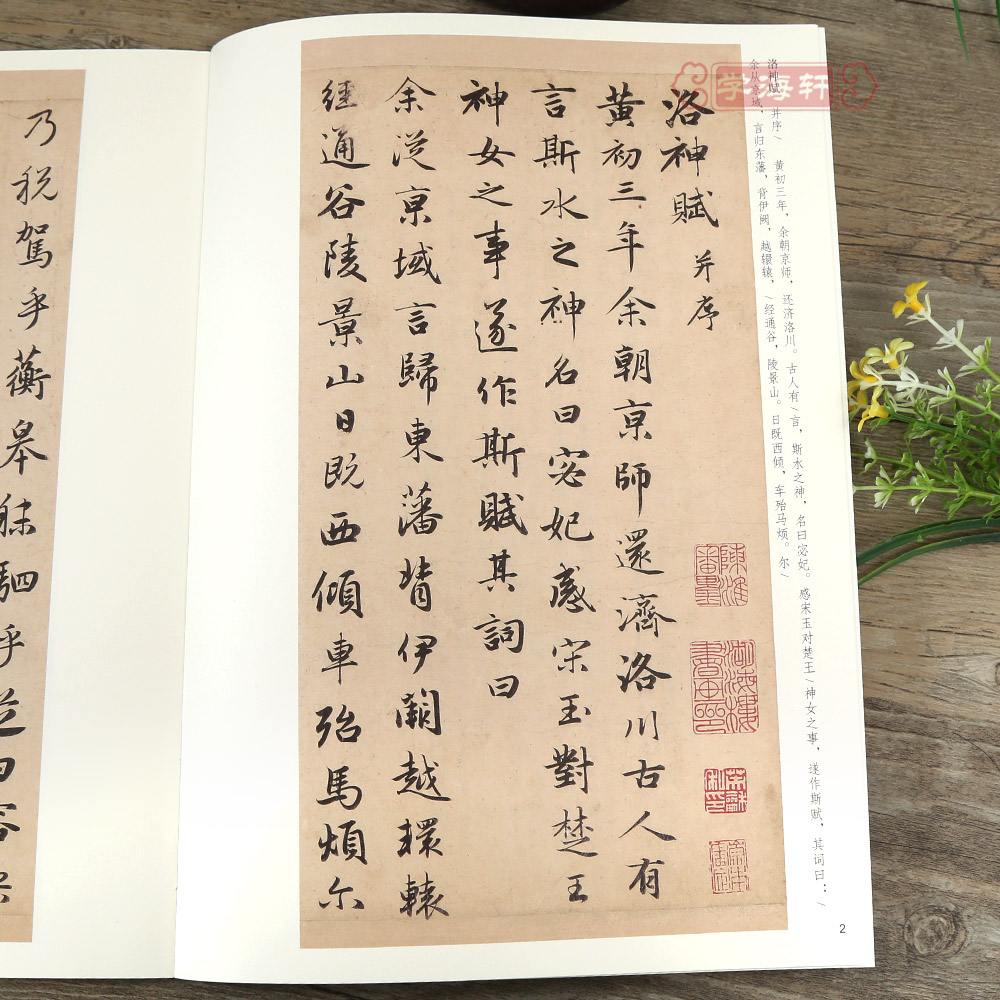 学海轩
洛神赋 并序/ 黄初三年，余朝京师，还济洛川。古人有/言，斯水之神，名曰宓妃。感宋玉对楚王/神女之事，遂作斯赋，其词曰：/
余从京域，言归东藩，背伊阙，越轘辕，/经通谷，陵景山。日既西倾，车殆马烦。尔/
洛神賦 并序
黄初三年余朝京師還濟洛川古人有
言斯水之神名曰宓妃感宋玉對楚王
神女之事遂作斯賦其詞曰
余從京域言歸東藩背伊闕越轘轅
經通谷陵景山日既西傾車殆馬煩尔
2
乃税駕乎蘅皋秣駟乎